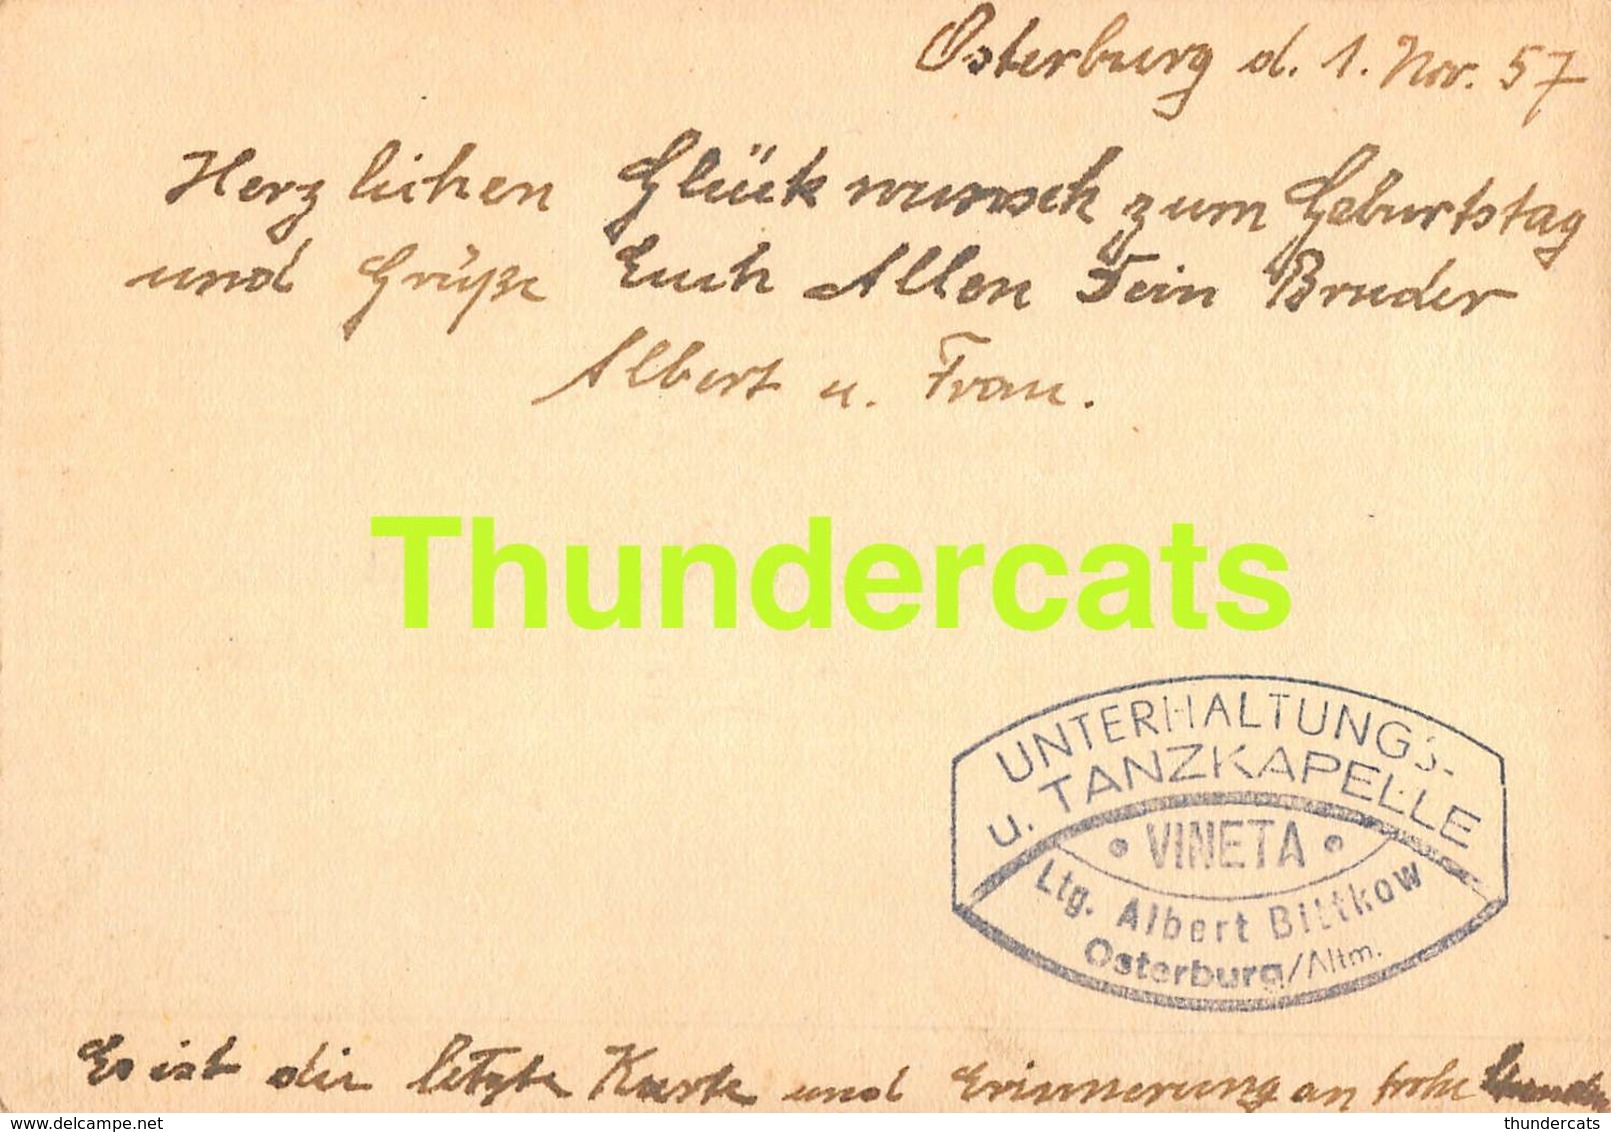 Osterburg d. 1. Nov. 57
Herzlichen Glückwunsch zum Geburtstag
und Grüße Euch Allen Dein Bruder
Albert u. Frau.
Thundercats
UNTERHALTUNGS-
u. TANZKAPELLE
• VINETA •
Ltg. Albert Bittkow
Osterburg/Altm.
Es ist die letzte Karte und Erinnerung an frohe Stunden
www.delcampe.net
thundercats